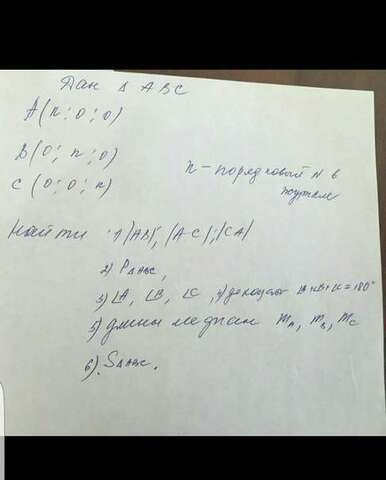 Дан Δ ABC
A(n; 0; 0)
B(0; n; 0)
C(0; 0; n)
n - порядковый N в
журнале
Найти 1) |AB|, |AC|, |CA|
2) PΔABC,
3) ∠A, ∠B, ∠C, 4) ∠A+∠B+∠C=180°
5) длины медиан mA, mB, mC
6). SΔABC.